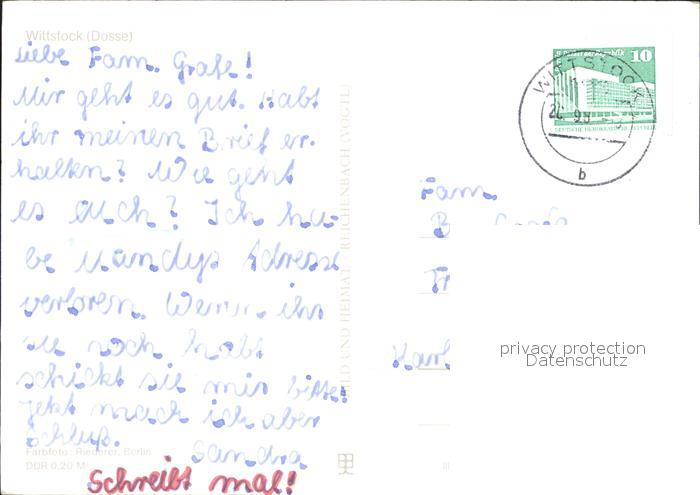 Wittstock (Dosse)
Liebe Fam. Grafe!
Mir geht es gut. Habt
ihr meinen Brief er-
halten? Wie geht
es Euch? Ich ha-
be Mandys Adresse
verloren. Wenn ihr
sie noch habt
schickt sie mir bitte!
Jetzt mach ich aber
Schluß.
Sandra
Schreibt mal!
Farbfoto: Riederer, Berlin
DDR 0,20 M
BILD UND HEIMAT REICHENBACH (VOGTL)
10
DEUTSCHE DEMOKRATISCHE REPUBLIK
WITTSTOCK
b
Fam.
B
Karl
privacy protection
Datenschutz